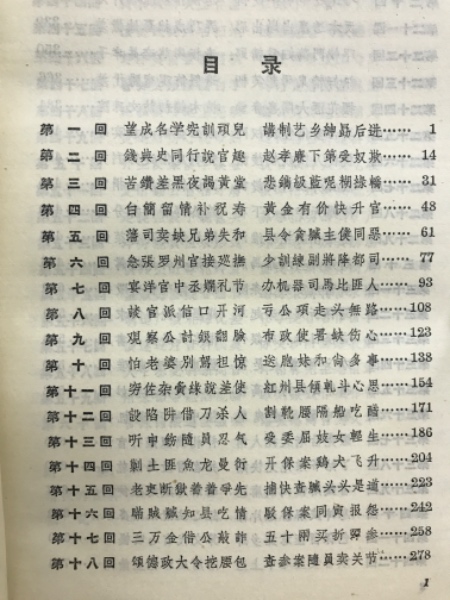 目 录
第一回 望成名学究訓頑兒 講制艺乡紳勗后进…… 1
第二回 錢典史同行說官趣 赵孝廉下第受奴欺…… 14
第三回 苦鑽差黑夜謁黄堂 悲鐫級藍呢糊綠轎…… 31
第四回 白簡留情补祝寿 黄金有价快升官…… 48
第五回 藩司卖缺兄弟失和 县令貪贜主僕同惡…… 61
第六回 急张罗州官接巡撫 少訓練副將降都司…… 77
第七回 宴洋官中丞嫻礼节 办机器司馬比匪人…… 93
第八回 談官派信口开河 亏公項走头無路……108
第九回 观察公討銀翻臉 布政使署缺伤心……123
第十回 怕老婆別駕担惊 送胞妹和尚多事……138
第十一回 穷佐杂夤緣說差使 紅州县傾軋斗心思……154
第十二回 設陷阱借刀杀人 割靴腰隔船吃醋……171
第十三回 听申飭随員忍气 受委屈妓女輕生……186
第十四回 剿土匪魚龙曼衍 开保案鷄犬飞升……204
第十五回 老吏断獄着着爭先 捕快查贜头头是道……223
第十六回 瞒賊贜知县吃情 駁保案同寅报怨……242
第十七回 三万金借公敲詐 五十兩买折彈参……258
第十八回 頌德政大令挖腰包 查参案随員卖关节……278
1